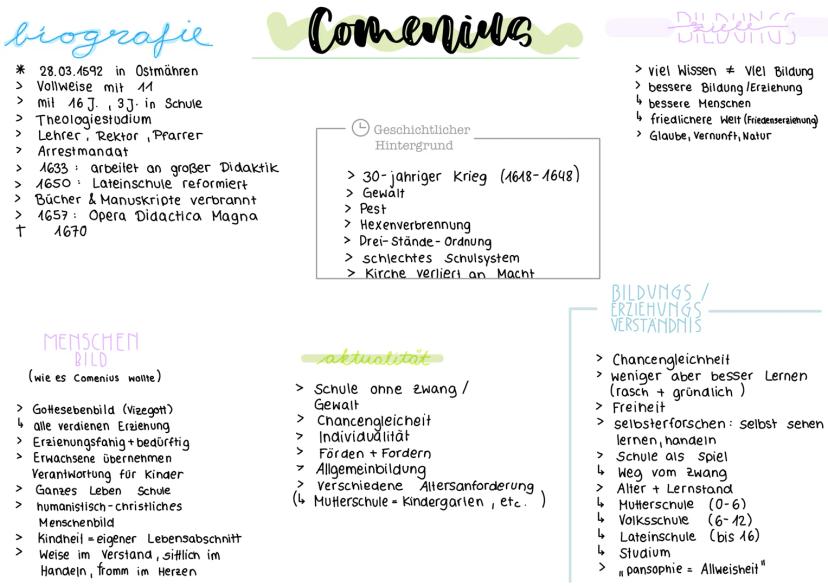 biografie
* 28.03.1592 in Ostmähren
> Vollweise mit 11
> mit 16 J., 3 J. in Schule
> Theologiestudium
> Lehrer, Rektor, Pfarrer
> Arrestmandat
> 1633: arbeitet an großer Didaktik
> 1650: Lateinschule reformiert
> Bücher & Manuskripte verbrannt
> 1657: Opera Didactica Magna
† 1670
Comenius
Geschichtlicher
Hintergrund
> 30-jahriger Krieg (1618-1648)
> Gewalt
> Pest
> Hexenverbrennung
> Drei-Stände-Ordnung
> schlechtes Schulsystem
> Kirche verliert an Macht
BILDUNGS
ziele
> viel Wissen ≠ viel Bildung
> bessere Bildung/Erziehung
↳ bessere Menschen
↳ friedlichere Welt (Friedenserziehung)
> Glaube, Vernunft, Natur
MENSCHEN
BILD
(wie es Comenius wollte)
> Gottesebenbild (Vizegott)
↳ alle verdienen Erziehung
> Erziehungsfähig + bedürftig
> Erwachsene übernehmen
Verantwortung für Kinder
> Ganzes Leben Schule
> humanistisch-christliches
Menschenbild
> Kindheit = eigener Lebensabschnitt
> Weise im Verstand, sittlich im
Handeln, fromm im Herzen
aktualität
> Schule ohne Zwang /
Gewalt
> Chancengleicheit
> Individualität
> Förden + Fordern
> Allgemeinbildung
> Verschiedene Altersanforderung
(↳ Mutterschule = Kindergarten, etc. )
BILDUNGS /
ERZIEHUNGS
VERSTÄNDNIS
> Chancengleichheit
> weniger aber besser Lernen
(rasch + gründlich )
> Freiheit
> selbsterforschen: selbst sehen
lernen, handeln
> Schule als Spiel
↳ Weg vom Zwang
> Alter + Lernstand
↳ Mutterschule (0-6)
↳ Volksschule (6-12)
↳ Lateinschule (bis 16)
↳ Studium
> „pansophie = Allweisheit"